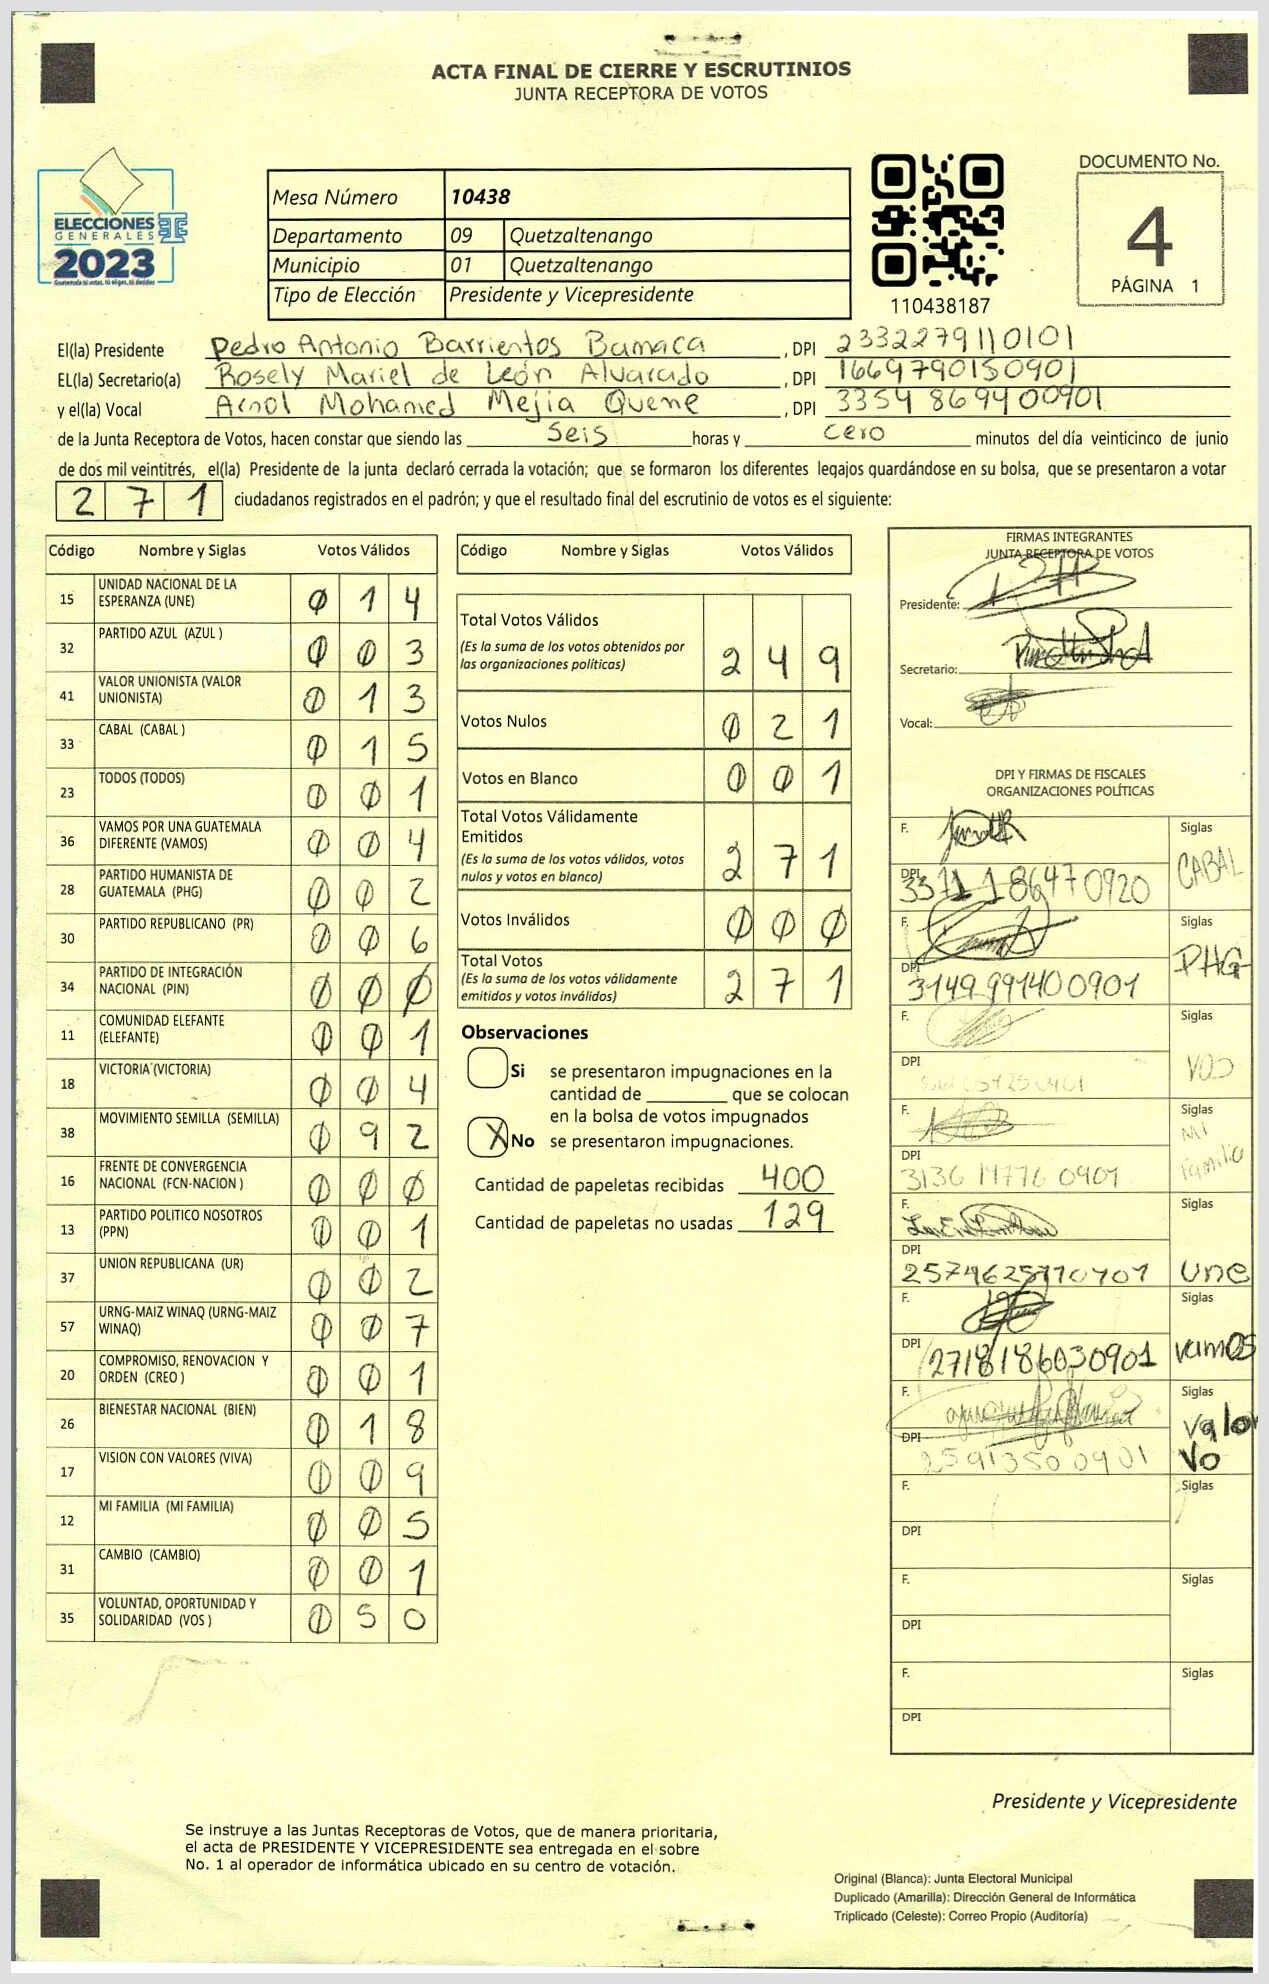 ACTA FINAL DE CIERRE Y ESCRUTINIOS
JUNTA RECEPTORA DE VOTOS
ELECCIONES
GENERALES
2023
Guatemala tú votas, tú eliges, tú decides
Mesa Número 10438
Departamento 09 Quetzaltenango
Municipio 01 Quetzaltenango
Tipo de Elección Presidente y Vicepresidente
110438187
DOCUMENTO No.
4
PÁGINA 1
El(la) Presidente Pedro Antonio Barrientos Bamaca , DPI 2332279110101
EL(la) Secretario(a) Rosely Mariel de León Alvarado , DPI 1669790150901
y el(la) Vocal Arnol Mohamed Mejia Queme , DPI 3354 869400901
de la Junta Receptora de Votos, hacen constar que siendo las Seis horas y cero minutos del día veinticinco de junio
de dos mil veintitrés, el(la) Presidente de la junta declaró cerrada la votación; que se formaron los diferentes legajos guardándose en su bolsa, que se presentaron a votar
271 ciudadanos registrados en el padrón; y que el resultado final del escrutinio de votos es el siguiente:
Código Nombre y Siglas Votos Válidos
15 UNIDAD NACIONAL DE LA ESPERANZA (UNE) 0 1 4
32 PARTIDO AZUL (AZUL ) 0 0 3
41 VALOR UNIONISTA (VALOR UNIONISTA) 0 1 3
33 CABAL (CABAL ) 0 1 5
23 TODOS (TODOS) 0 0 1
36 VAMOS POR UNA GUATEMALA DIFERENTE (VAMOS) 0 0 4
28 PARTIDO HUMANISTA DE GUATEMALA (PHG) 0 0 2
30 PARTIDO REPUBLICANO (PR) 0 0 6
34 PARTIDO DE INTEGRACIÓN NACIONAL (PIN) 0 0 0
11 COMUNIDAD ELEFANTE (ELEFANTE) 0 0 1
18 VICTORIA (VICTORIA) 0 0 4
38 MOVIMIENTO SEMILLA (SEMILLA) 0 9 2
16 FRENTE DE CONVERGENCIA NACIONAL (FCN-NACION ) 0 0 0
13 PARTIDO POLITICO NOSOTROS (PPN) 0 0 1
37 UNION REPUBLICANA (UR) 0 0 2
57 URNG-MAIZ WINAQ (URNG-MAIZ WINAQ) 0 0 7
20 COMPROMISO, RENOVACION Y ORDEN (CREO ) 0 0 1
26 BIENESTAR NACIONAL (BIEN) 0 1 8
17 VISION CON VALORES (VIVA) 0 0 9
12 MI FAMILIA (MI FAMILIA) 0 0 5
31 CAMBIO (CAMBIO) 0 0 1
35 VOLUNTAD, OPORTUNIDAD Y SOLIDARIDAD (VOS ) 0 5 0
Código Nombre y Siglas Votos Válidos
Total Votos Válidos 2 4 9
(Es la suma de los votos obtenidos por
las organizaciones políticas)
Votos Nulos 0 2 1
Votos en Blanco 0 0 1
Total Votos Válidamente
Emitidos 2 7 1
(Es la suma de los votos válidos, votos
nulos y votos en blanco)
Votos Inválidos 0 0 0
Total Votos 2 7 1
(Es la suma de los votos válidamente
emitidos y votos inválidos)
Observaciones
Si se presentaron impugnaciones en la
cantidad de ________ que se colocan
en la bolsa de votos impugnados
X No se presentaron impugnaciones.
Cantidad de papeletas recibidas 400
Cantidad de papeletas no usadas 129
FIRMAS INTEGRANTES
JUNTA RECEPTORA DE VOTOS
Presidente:
Secretario:
Vocal:
DPI Y FIRMAS DE FISCALES
ORGANIZACIONES POLÍTICAS
F. Siglas CABAL
DPI 3371186470920
F. Siglas PHG
DPI 3149 991400901
F. Siglas VOS
DPI
F. Siglas MI familia
DPI 3136 14776 0901
F. Siglas une
DPI
F. Siglas vamos
DPI 2718186030901
F. Siglas Valor
DPI 2591350 0901 Vo
F. Siglas
DPI
F. Siglas
DPI
F. Siglas
DPI
Presidente y Vicepresidente
Se instruye a las Juntas Receptoras de Votos, que de manera prioritaria,
el acta de PRESIDENTE Y VICEPRESIDENTE sea entregada en el sobre
No. 1 al operador de informática ubicado en su centro de votación.
Original (Blanca): Junta Electoral Municipal
Duplicado (Amarilla): Dirección General de Informática
Triplicado (Celeste): Correo Propio (Auditoría)